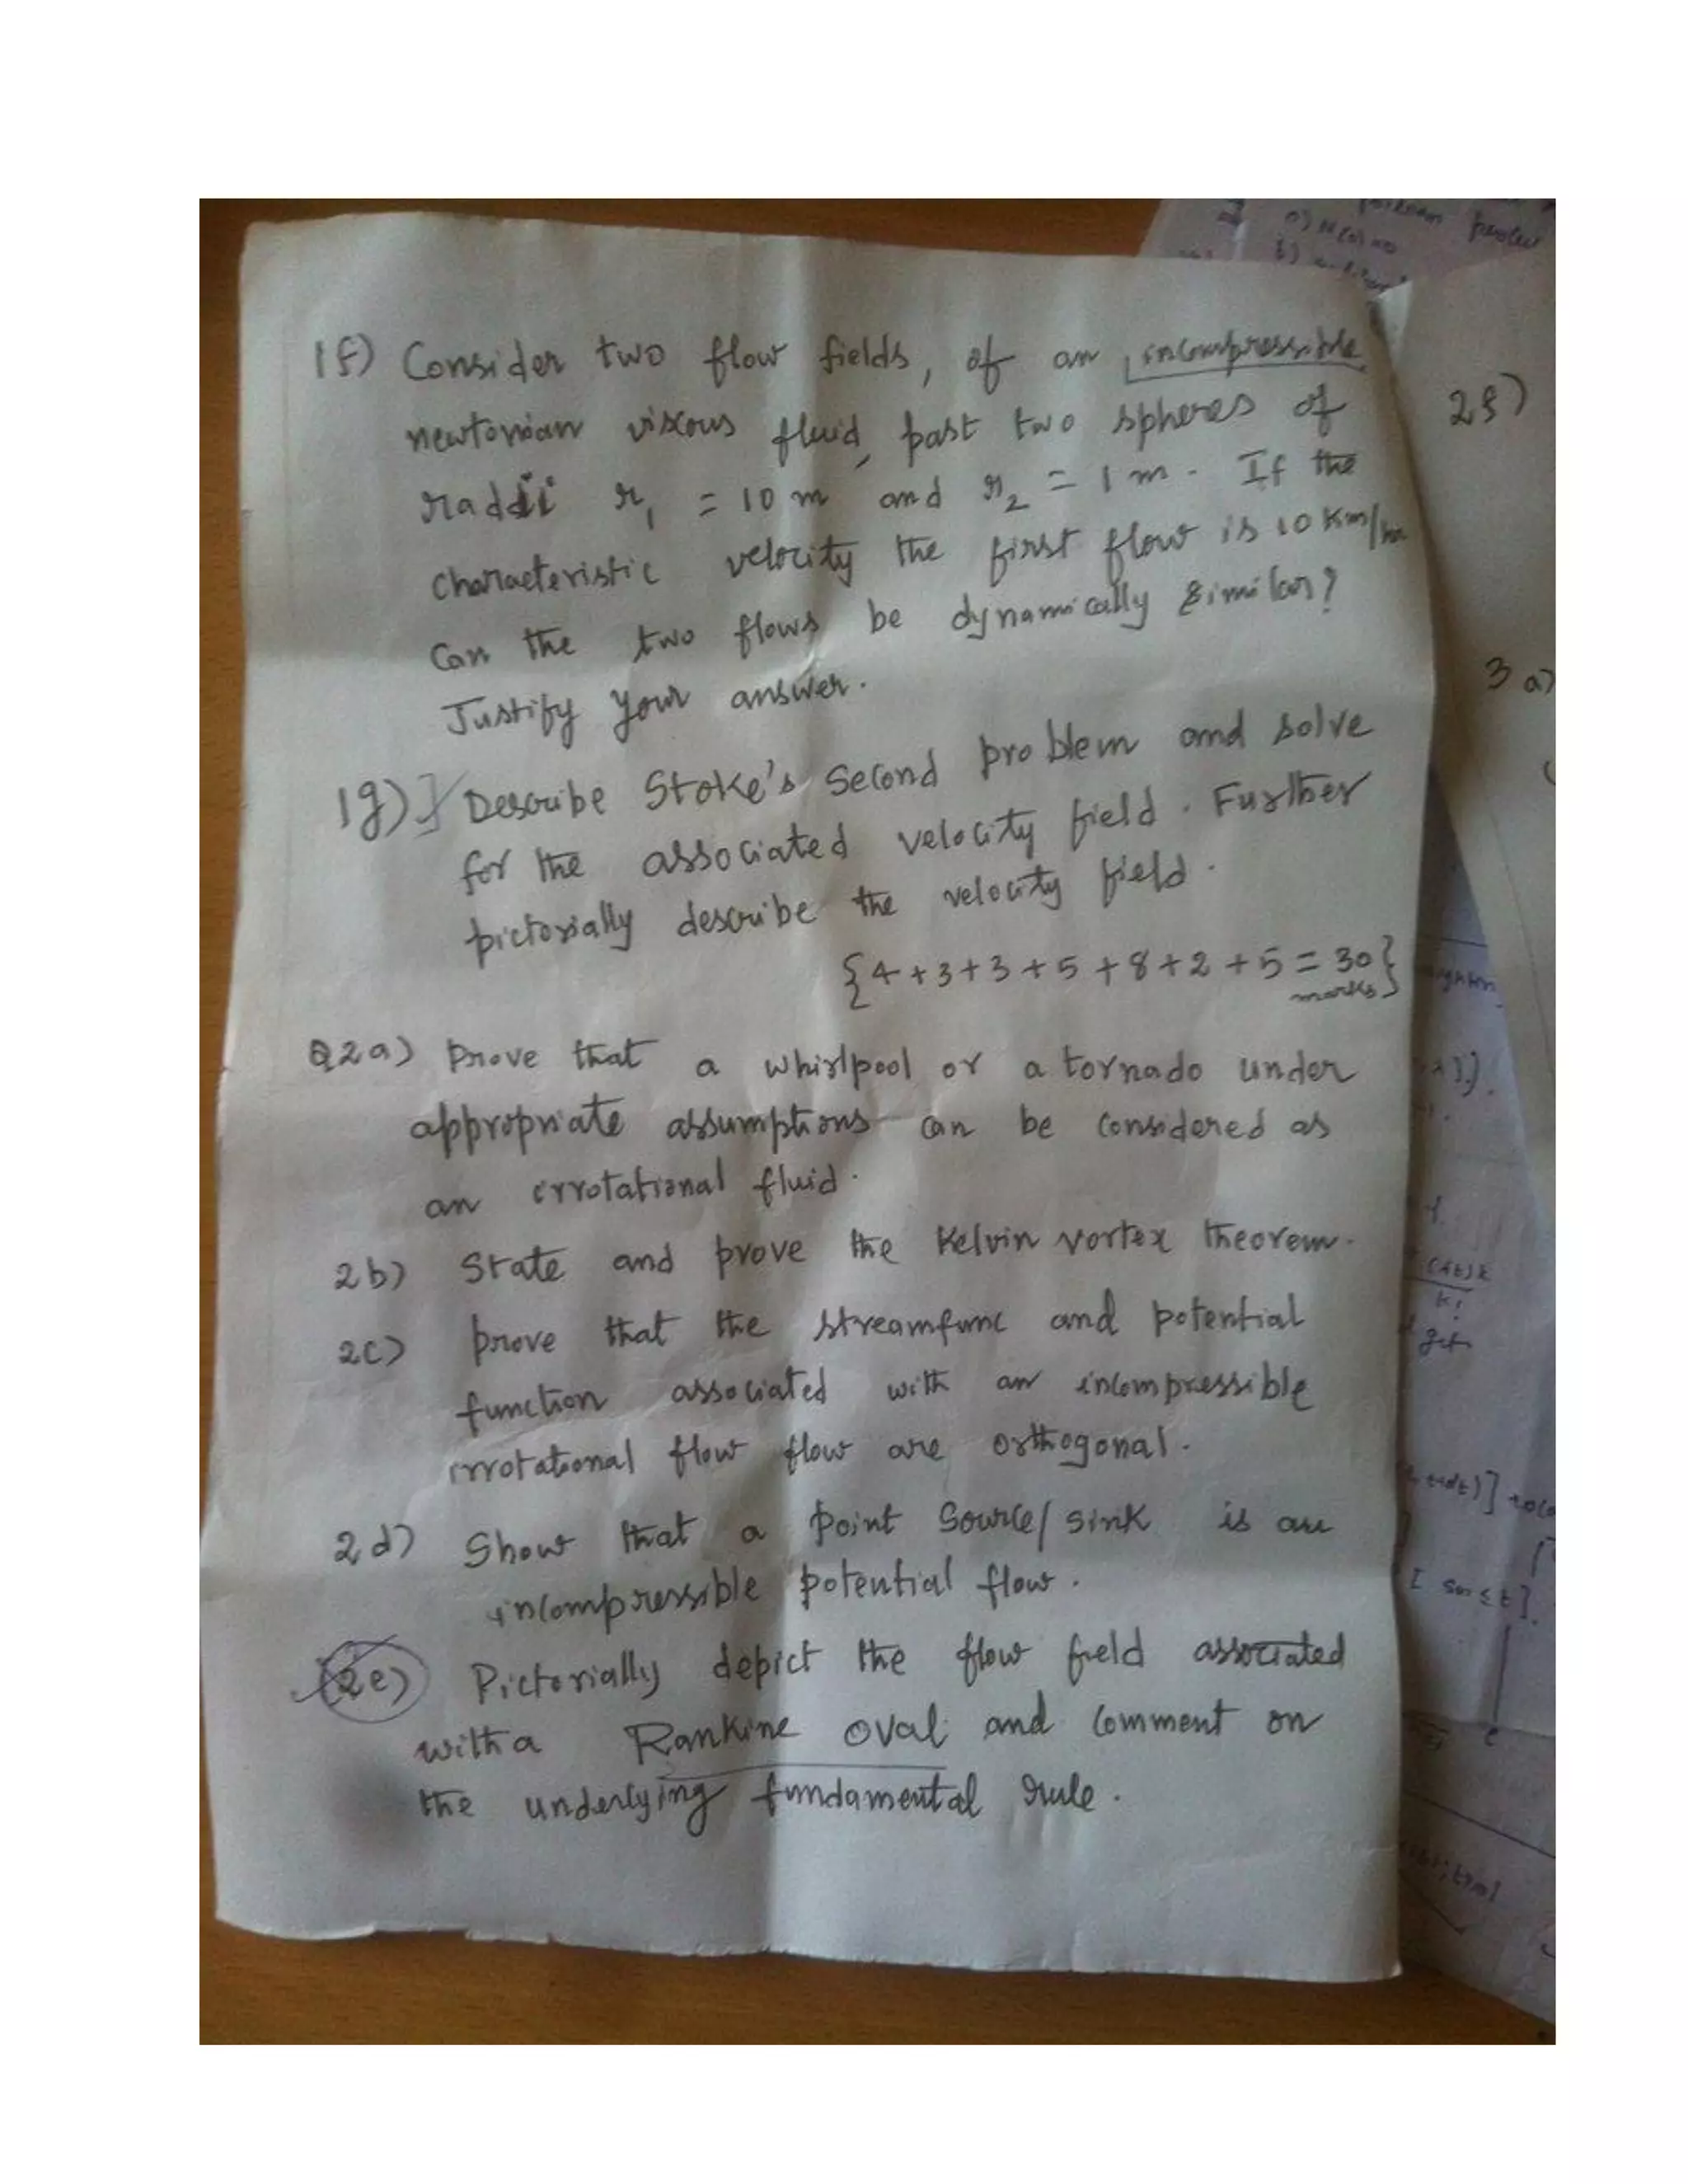 1f) Consider two flow fields, of an incompressible
newtonian viscous fluid, past two spheres of
raddii r₁ = 10 m and r₂ = 1 m. If the
characteristic velocity the first flow is 10 Km/hr
Can the two flows be dynamically similar?
Justify your answer.
1g) Describe Stoke's Second problem and solve
for the associated velocity field. Further
pictorially describe the velocity field.
{4+3+3+5+8+2+5=30}
marks
Q2a) Prove that a whirlpool or a tornado under
appropriate assumptions can be considered as
an irrotational fluid.
2b) State and prove the Kelvin vortex theorem.
2c) Prove that the streamfunc and potential
function associated with an incompressible
irrotational flow flow are orthogonal.
2d) Show that a point source/sink is an
incompressible potential flow.
(2e) Pictorially depict the flow field associated
with a Rankine oval and comment on
the underlying fundamental rule.
2f)
3 a)
a) N(0)=0
b)
k!
get